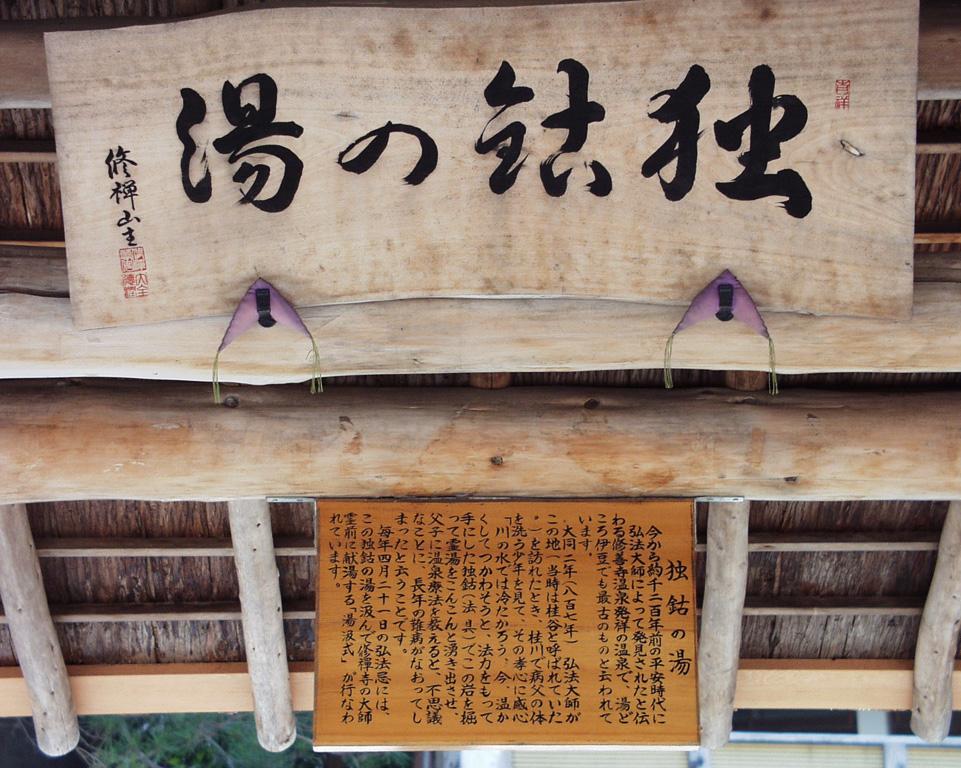 独鈷の湯
修禅山主
吉祥
独鈷の湯
今から約千二百年前の平安時代に
弘法大師によって発見されたと伝
わる修善寺温泉発祥の温泉で、湯ど
ころ伊豆でも最古のものと云われて
います。
大同二年(八百七年) 弘法大師が
この地(当時は桂谷と呼ばれていた
。)を訪れたとき、桂川で病父の体
を洗う少年を見て、その孝心に感心
「川の水では冷たかろう」今、温か
くしてつかわそうと、法力をもって
手にした独鈷(法具)でこの岩を掘
って霊湯をこんこんと湧き出させ、
父子に温泉療法を教えると、不思議
なことに、長年の難病がなおってし
まったと云うことです。
毎年四月二十一日の弘法忌には、
この独鈷の湯を汲んで修禅寺の大師
霊前に献湯する「湯汲式」が行なわ
れています。